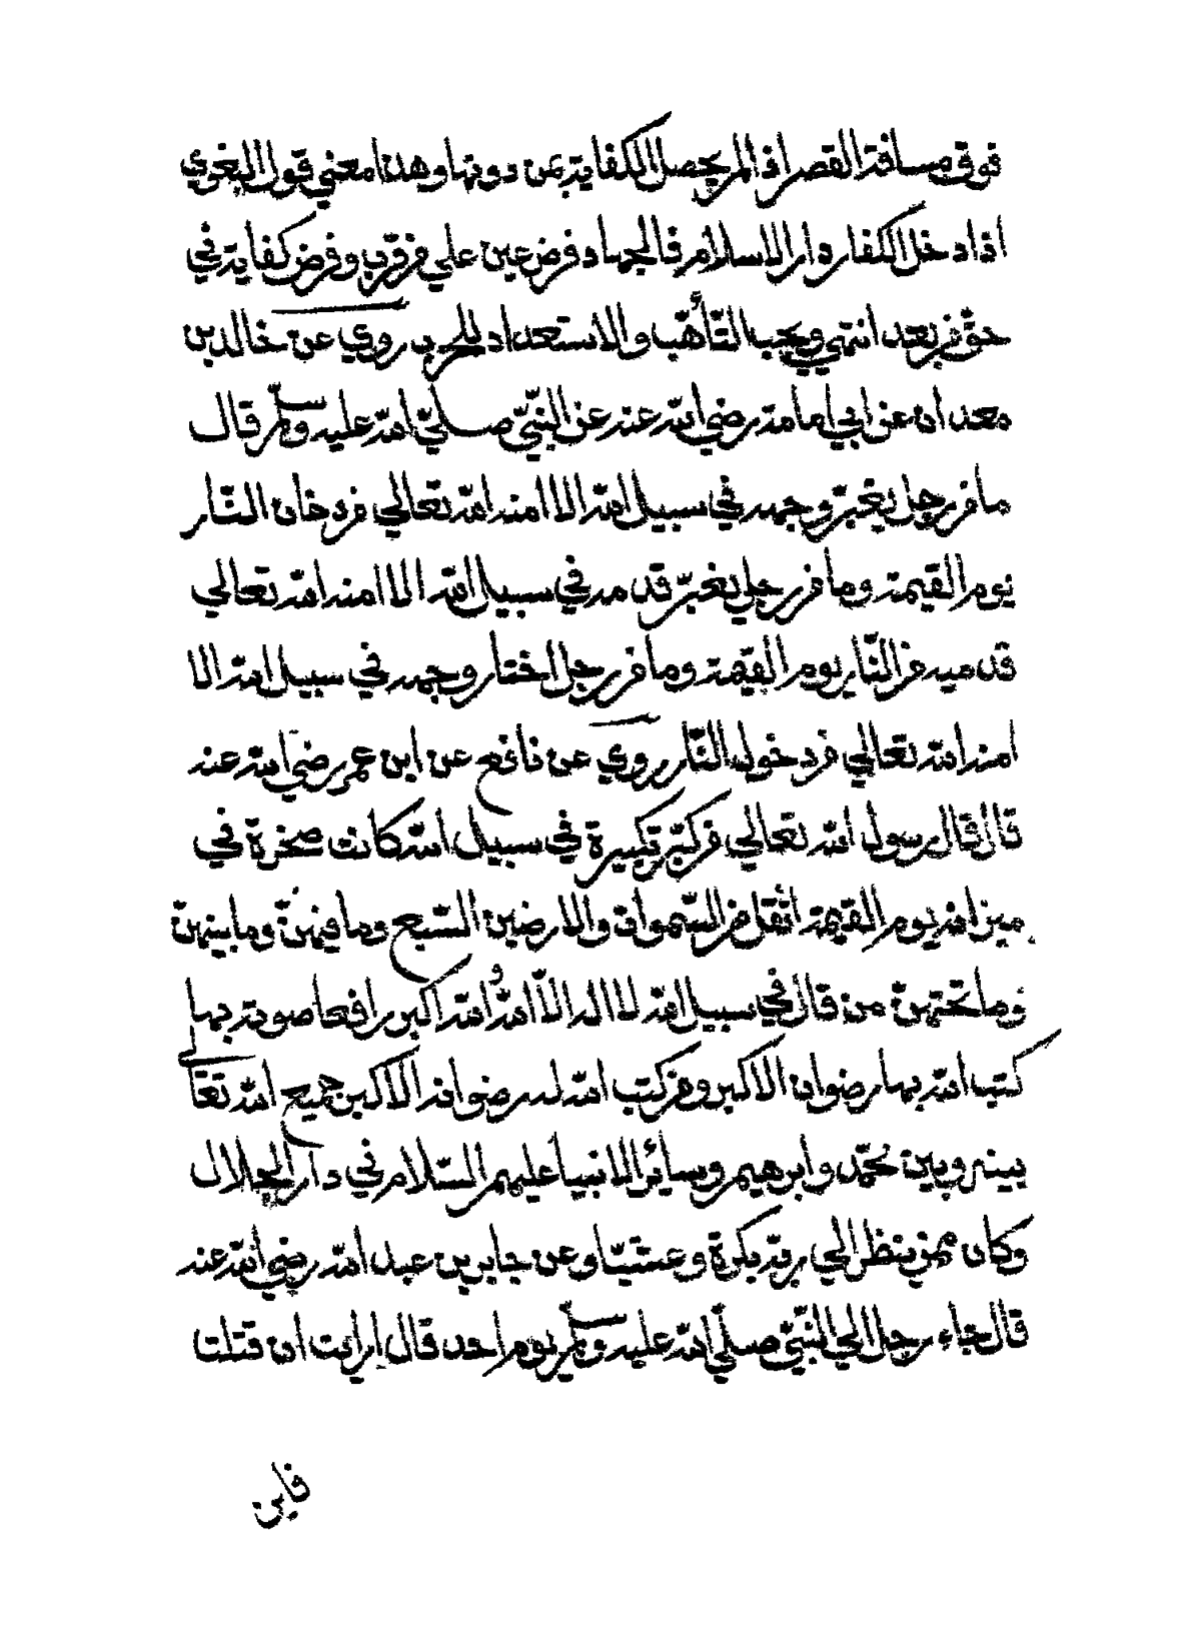 فوق مسافة القصر اذ المر يحصل الكفاية بمن دونها وهذا معني قول البغوي
اذا دخل الكفار دار الاسلام فالجهاد فرض عين علي من قرب وفرض كفاية في
حق من بعد انتهي ويجب التأهّب والاستعداد للحرب روي عن خالد بن
معدان عن ابي امامة رضي الله عنه عن النبّيّ صلّي الله عليه وسلّم قال
ما من رجل يغبرّ وجهه في سبيل الله الا امنه الله تعالي من دخان النّار
يوم القيمة وما من رجل يغبرّ قدمه في سبيل الله الا امنه الله تعالي
قدميه من النّار يوم القيمة وما من رجل اختار وجهه في سبيل الله الا
امنه الله تعالي من دخول النّار روي عن نافع عن ابن عمر رضي الله عنه
قال قال رسول الله تعالي من كبّر تكبيرة في سبيل الله كانت صخرة في
ميزانه يوم القيمة اثقل من السّموات والارضين السّبع وما فيهنّ وما بينهنّ
وما تحتهنّ من قال في سبيل الله لا اله الاّ الله والله اكبر رافعا صوته بها
كتب الله بها رضوان الاكبر ومن كتب الله له رضوانه الاكبر جميع الله تعالي
بينه وبين محمّد وابرهيم وسائر الانبيا عليهم السّلام في دار الجلال
وكان ممن ينظر الي ربه بكرة وعشيّا وعن جابر بن عبد الله رضي الله عنه
قال جاء رجل الي النبّيّ صلّي الله عليه وسلّم يوم احد قال ارايت ان قتلت
فاين